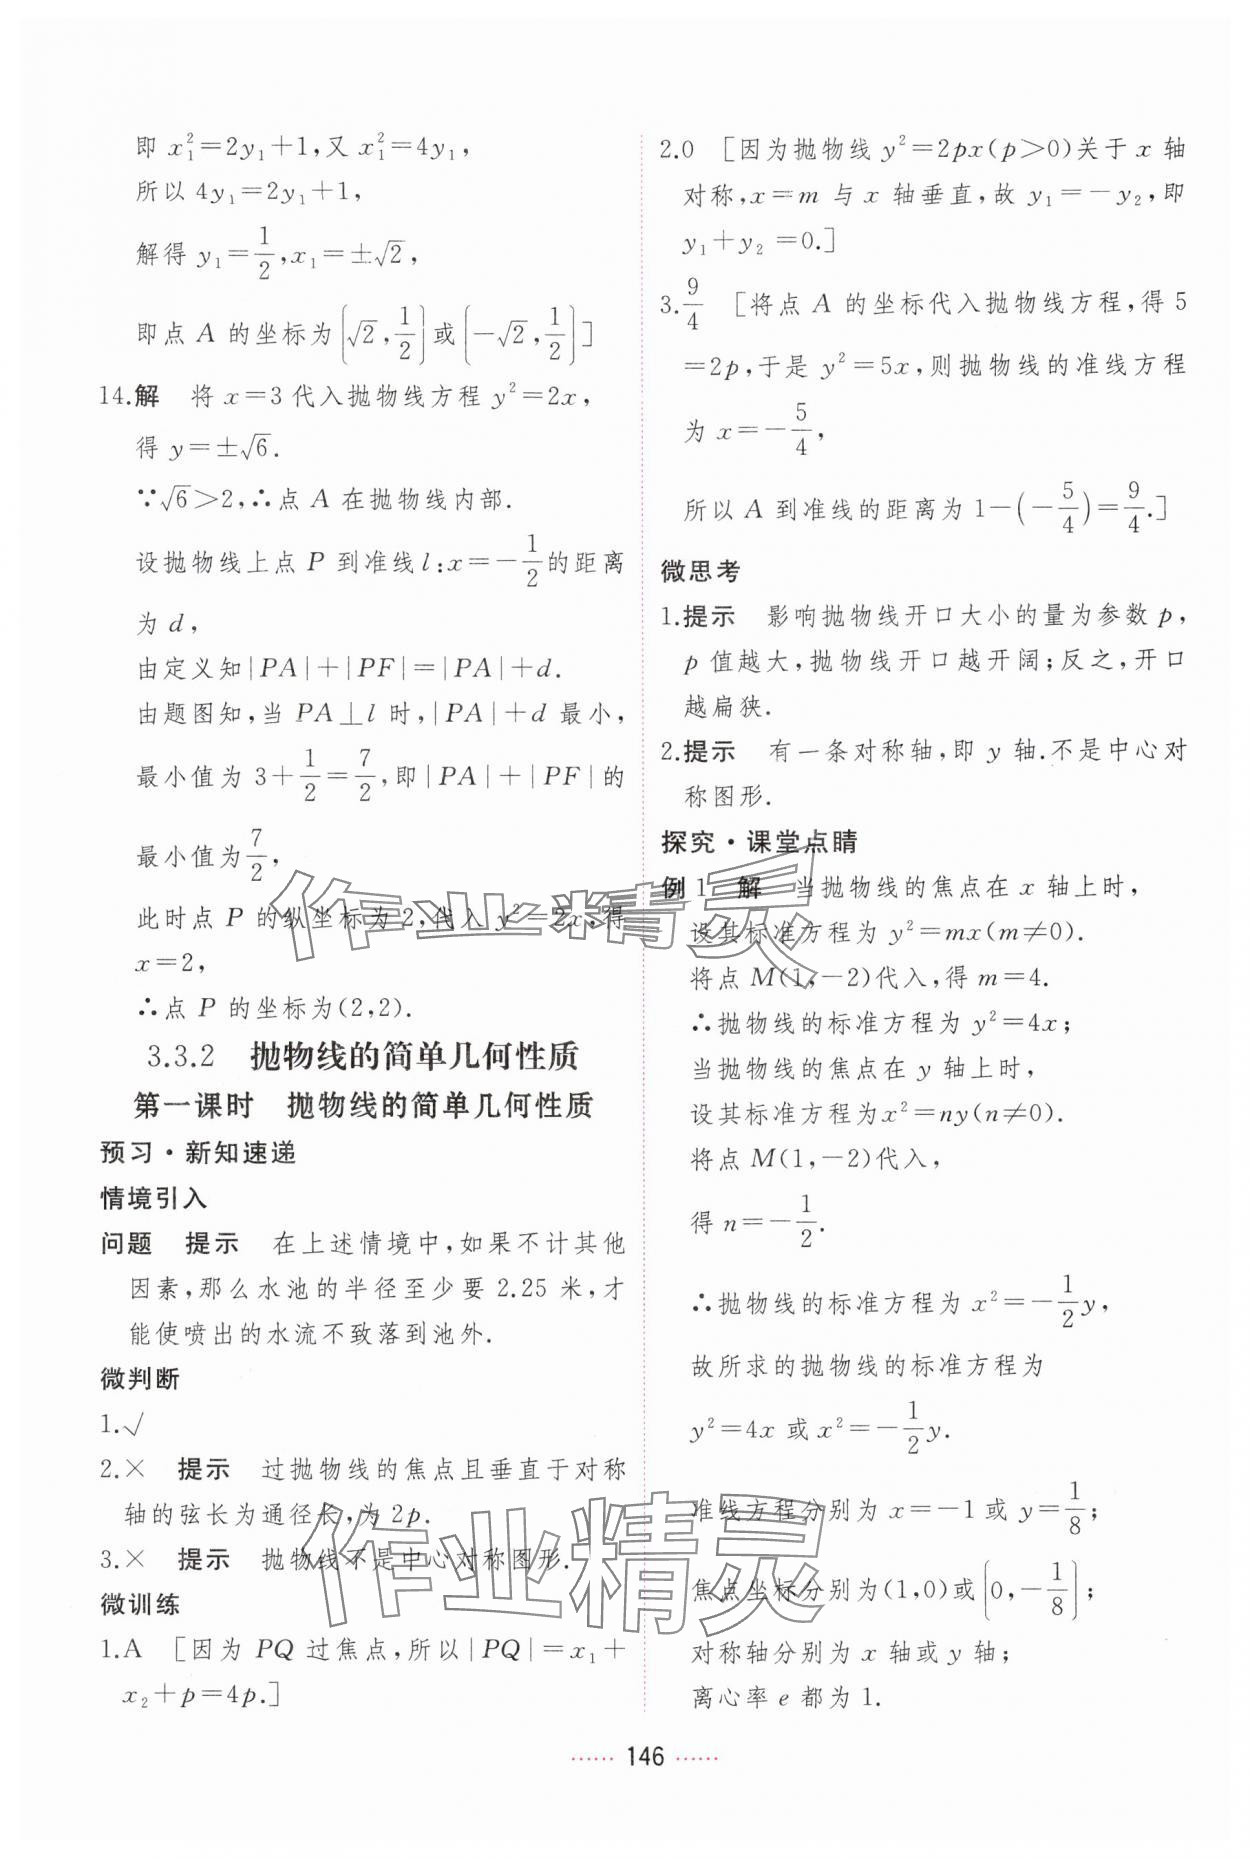 即 x₁²=2y₁+1,又 x₁²=4y₁,
所以 4y₁=2y₁+1,
解得 y₁=1/2,x₁=±√2,
即点 A 的坐标为(√2,1/2)或(-√2,1/2)]
14.解 将 x=3 代入抛物线方程 y²=2x,
得 y=±√6.
∵√6>2,∴点 A 在抛物线内部.
设抛物线上点 P 到准线 l:x=-1/2的距离
为 d,
由定义知|PA|+|PF|=|PA|+d.
由题图知,当 PA⊥l 时,|PA|+d 最小,
最小值为 3+1/2=7/2,即|PA|+|PF|的
最小值为7/2,
此时点 P 的纵坐标为 2,代入 y²=2x,得
x=2,
∴点 P 的坐标为(2,2).
3.3.2 抛物线的简单几何性质
第一课时 抛物线的简单几何性质
预习·新知速递
情境引入
问题 提示 在上述情境中,如果不计其他
因素,那么水池的半径至少要 2.25 米,才
能使喷出的水流不致落到池外.
微判断
1.√
2.× 提示 过抛物线的焦点且垂直于对称
轴的弦长为通径长,为 2p.
3.× 提示 抛物线不是中心对称图形.
微训练
1.A [因为 PQ 过焦点,所以|PQ|=x₁+
x₂+p=4p.]
2.0 [因为抛物线 y²=2px(p>0)关于 x 轴
对称,x=m 与 x 轴垂直,故 y₁=-y₂,即
y₁+y₂=0.]
3.9/4 [将点 A 的坐标代入抛物线方程,得 5
=2p,于是 y²=5x,则抛物线的准线方程
为 x=-5/4,
所以 A 到准线的距离为 1-(-5/4)=9/4.]
微思考
1.提示 影响抛物线开口大小的量为参数 p,
p 值越大,抛物线开口越开阔;反之,开口
越扁狭.
2.提示 有一条对称轴,即 y 轴.不是中心对
称图形.
探究·课堂点睛
例 1 解 当抛物线的焦点在 x 轴上时,
设其标准方程为 y²=mx(m≠0).
将点 M(1,-2)代入,得 m=4.
∴抛物线的标准方程为 y²=4x;
当抛物线的焦点在 y 轴上时,
设其标准方程为x²=ny(n≠0).
将点 M(1,-2)代入,
得 n=-1/2.
∴抛物线的标准方程为 x²=-1/2y,
故所求的抛物线的标准方程为
y²=4x 或 x²=-1/2y.
准线方程分别为 x=-1 或 y=1/8;
焦点坐标分别为(1,0)或(0,-1/8);
对称轴分别为 x 轴或 y 轴;
离心率 e 都为 1.
146
作业精灵
作业精灵